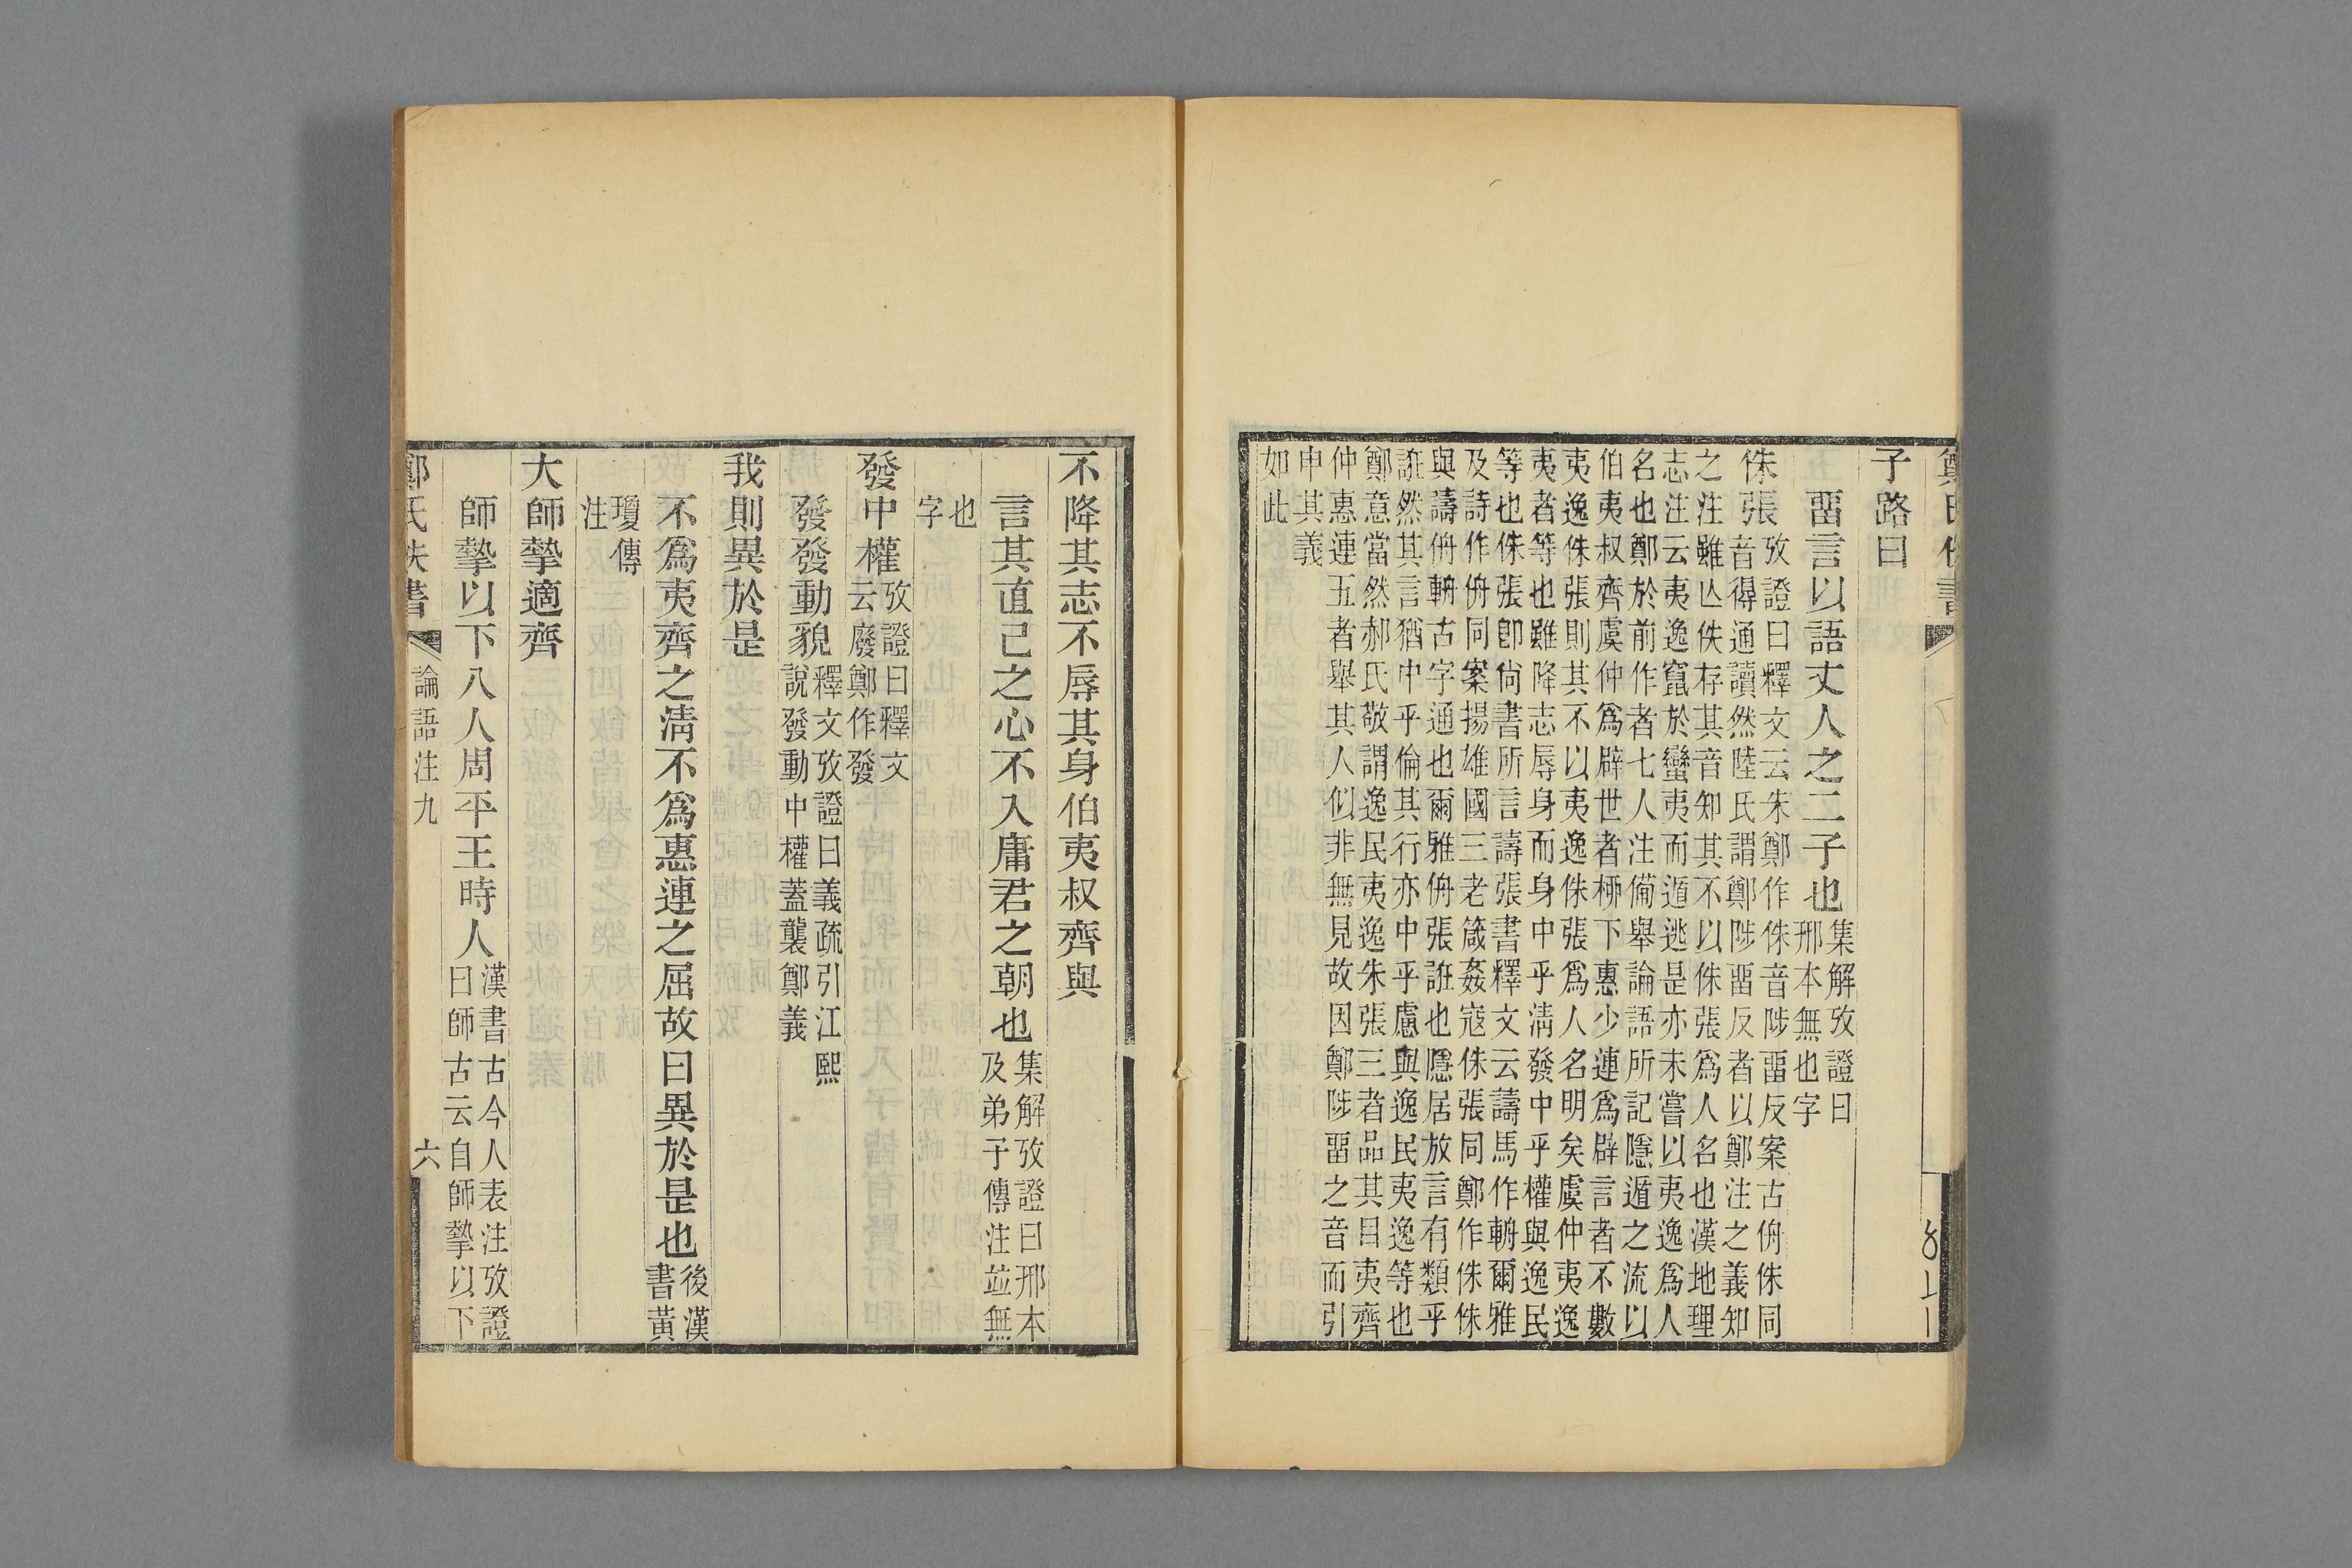 鄭氏佚書
子路曰
畱言以語丈人之二子也
集解攷證曰
邢本無也字
侏張
攷證曰釋文云朱鄭作侏音陟畱反案古侜侏同
音得通讀然陸氏謂鄭陟畱反者以鄭注之義知
之注雖亾佚存其音知其不以侏張爲人名也漢地理
志注云夷逸竄於蠻夷而遁逃是亦未嘗以夷逸爲人
名也鄭於前作者七人注備舉論語所記隱遁之流以
伯夷叔齊虞仲爲辟世者桺下惠少連爲辟言者不數
夷逸侏張則其不以夷逸侏張爲人名明矣虞仲夷逸
夷者等也雖降志辱身而身中乎淸發中乎權與逸民
等也侏張卽尙書所言譸張書釋文云譸馬作輈爾雅
及詩作侜同案揚雄國三老箴姦寇侏張同鄭作侏侏
與譸侜輈古字通也爾雅侜張誑也隱居放言有類乎
誑然其言猶中乎倫其行亦中乎慮與逸民夷逸等也
鄭意當然郝氏敬謂逸民夷逸朱張三者品其目夷齊
仲惠連五者舉其人似非無見故因鄭陟畱之音而引
申其義
如此
不降其志不辱其身伯夷叔齊與
言其直己之心不入庸君之朝也
集解攷證曰邢本
及弟子傳注並無
也
字
發中權
攷證曰釋文
云廢鄭作發
發發動貌
釋文攷證曰義疏引江熙
說發動中權蓋襲鄭義
我則異於是
不爲夷齊之淸不爲惠連之屈故曰異於是也
後漢
書黃
瓊傳
注
大師摯適齊
師摯以下八人周平王時人
漢書古今人表注攷證
曰師古云自師摯以下
鄭氏佚書
論語注九
六